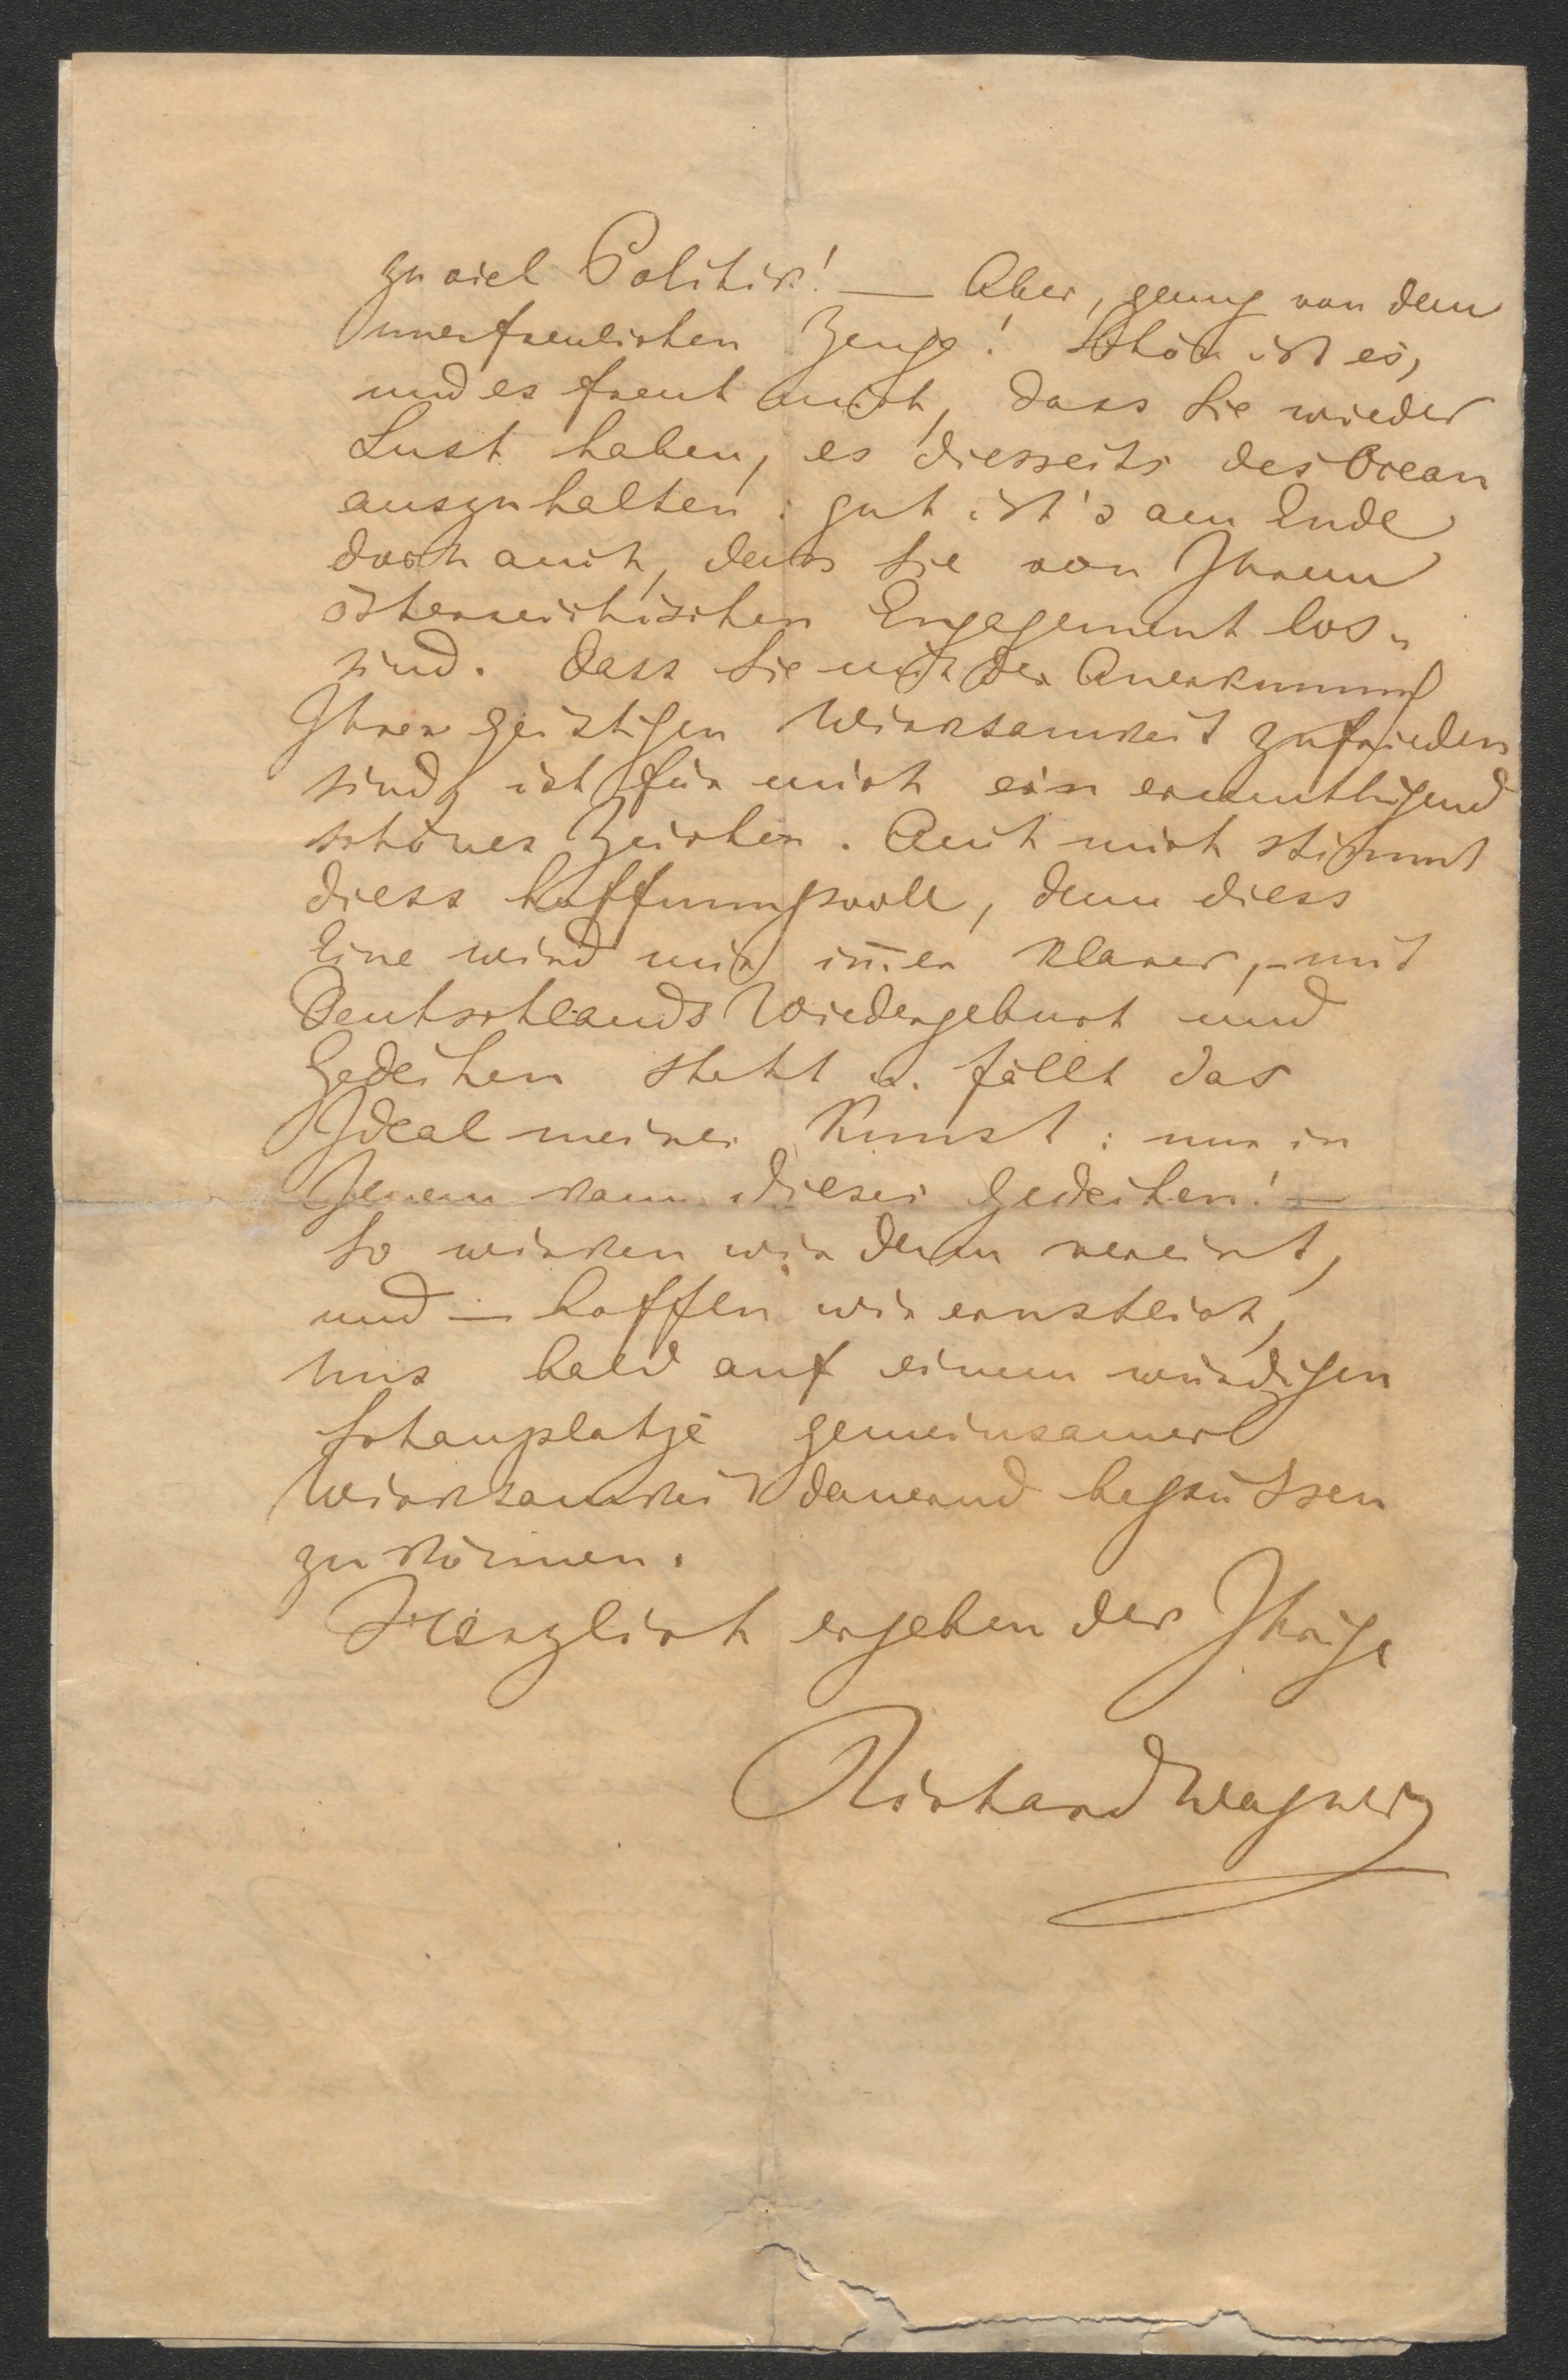 zu viel Politik! — Aber, genug von dem
unerfreulichen Zeuge! Schön ist es,
und es freut mich, dass Sie wieder
Lust haben, es diesseits des Ocean
auszuhalten: gut ist's am Ende
doch auch, dass Sie von Ihrem
österreichischen Engagement los
sind. Dass Sie mit der Anerkennung
Ihrer geistigen Wirksamkeit zufrieden
sind, ist für mich ein ermuthigend
schönes Zeichen. Auch mich stimmt
diess hoffnungsvoll, denn diess
Eine wird mir im̅er klarer, - mit
Deutschlands Wiedergeburt und
Gedeihen steht u. fällt das
Ideal meiner Kunst: nur in
Jenem kann dieses gedeihen! —
So wirken wir denn vereint,
und — hoffen wir ernstlich,
uns bald auf einem würdigen
Schauplatze gemeinsamer
Wirksamkeit dauernd begrüssen
zu können.
Herzlich ergeben der Ihrige
Richard Wagner